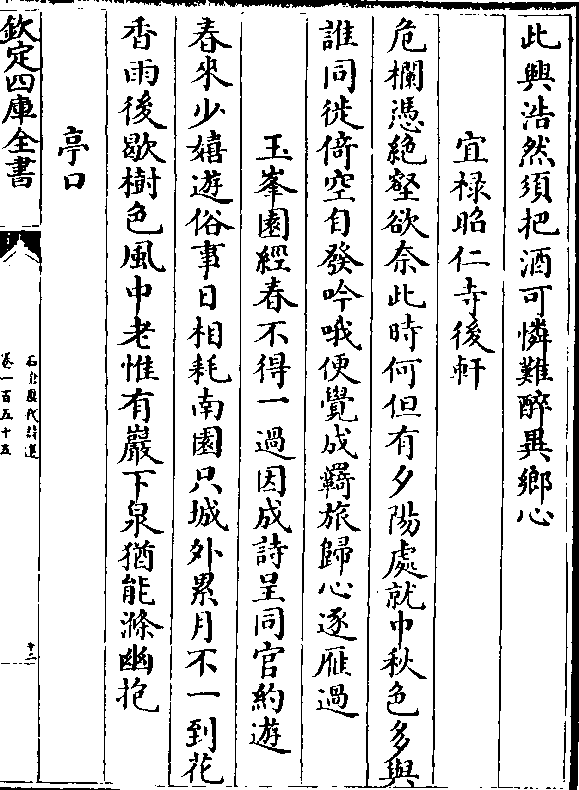 此興浩然須把酒可憐難醉異鄉心
宜禄昭仁寺後軒
危欄憑絶壑欲奈此時何但有夕陽處就中秋色多與
誰同徙倚空自發吟哦便覺成羇旅歸心逐雁過
玉峯園經春不得一過因成詩呈同官約遊
春來少嬉遊俗事日相耗南園只城外累月不一到花
香雨後歇樹色風中老惟有巖下泉猶能滌幽抱
亭口
欽定四庫全書
石倉歷代詩選
卷一百五十五
十二